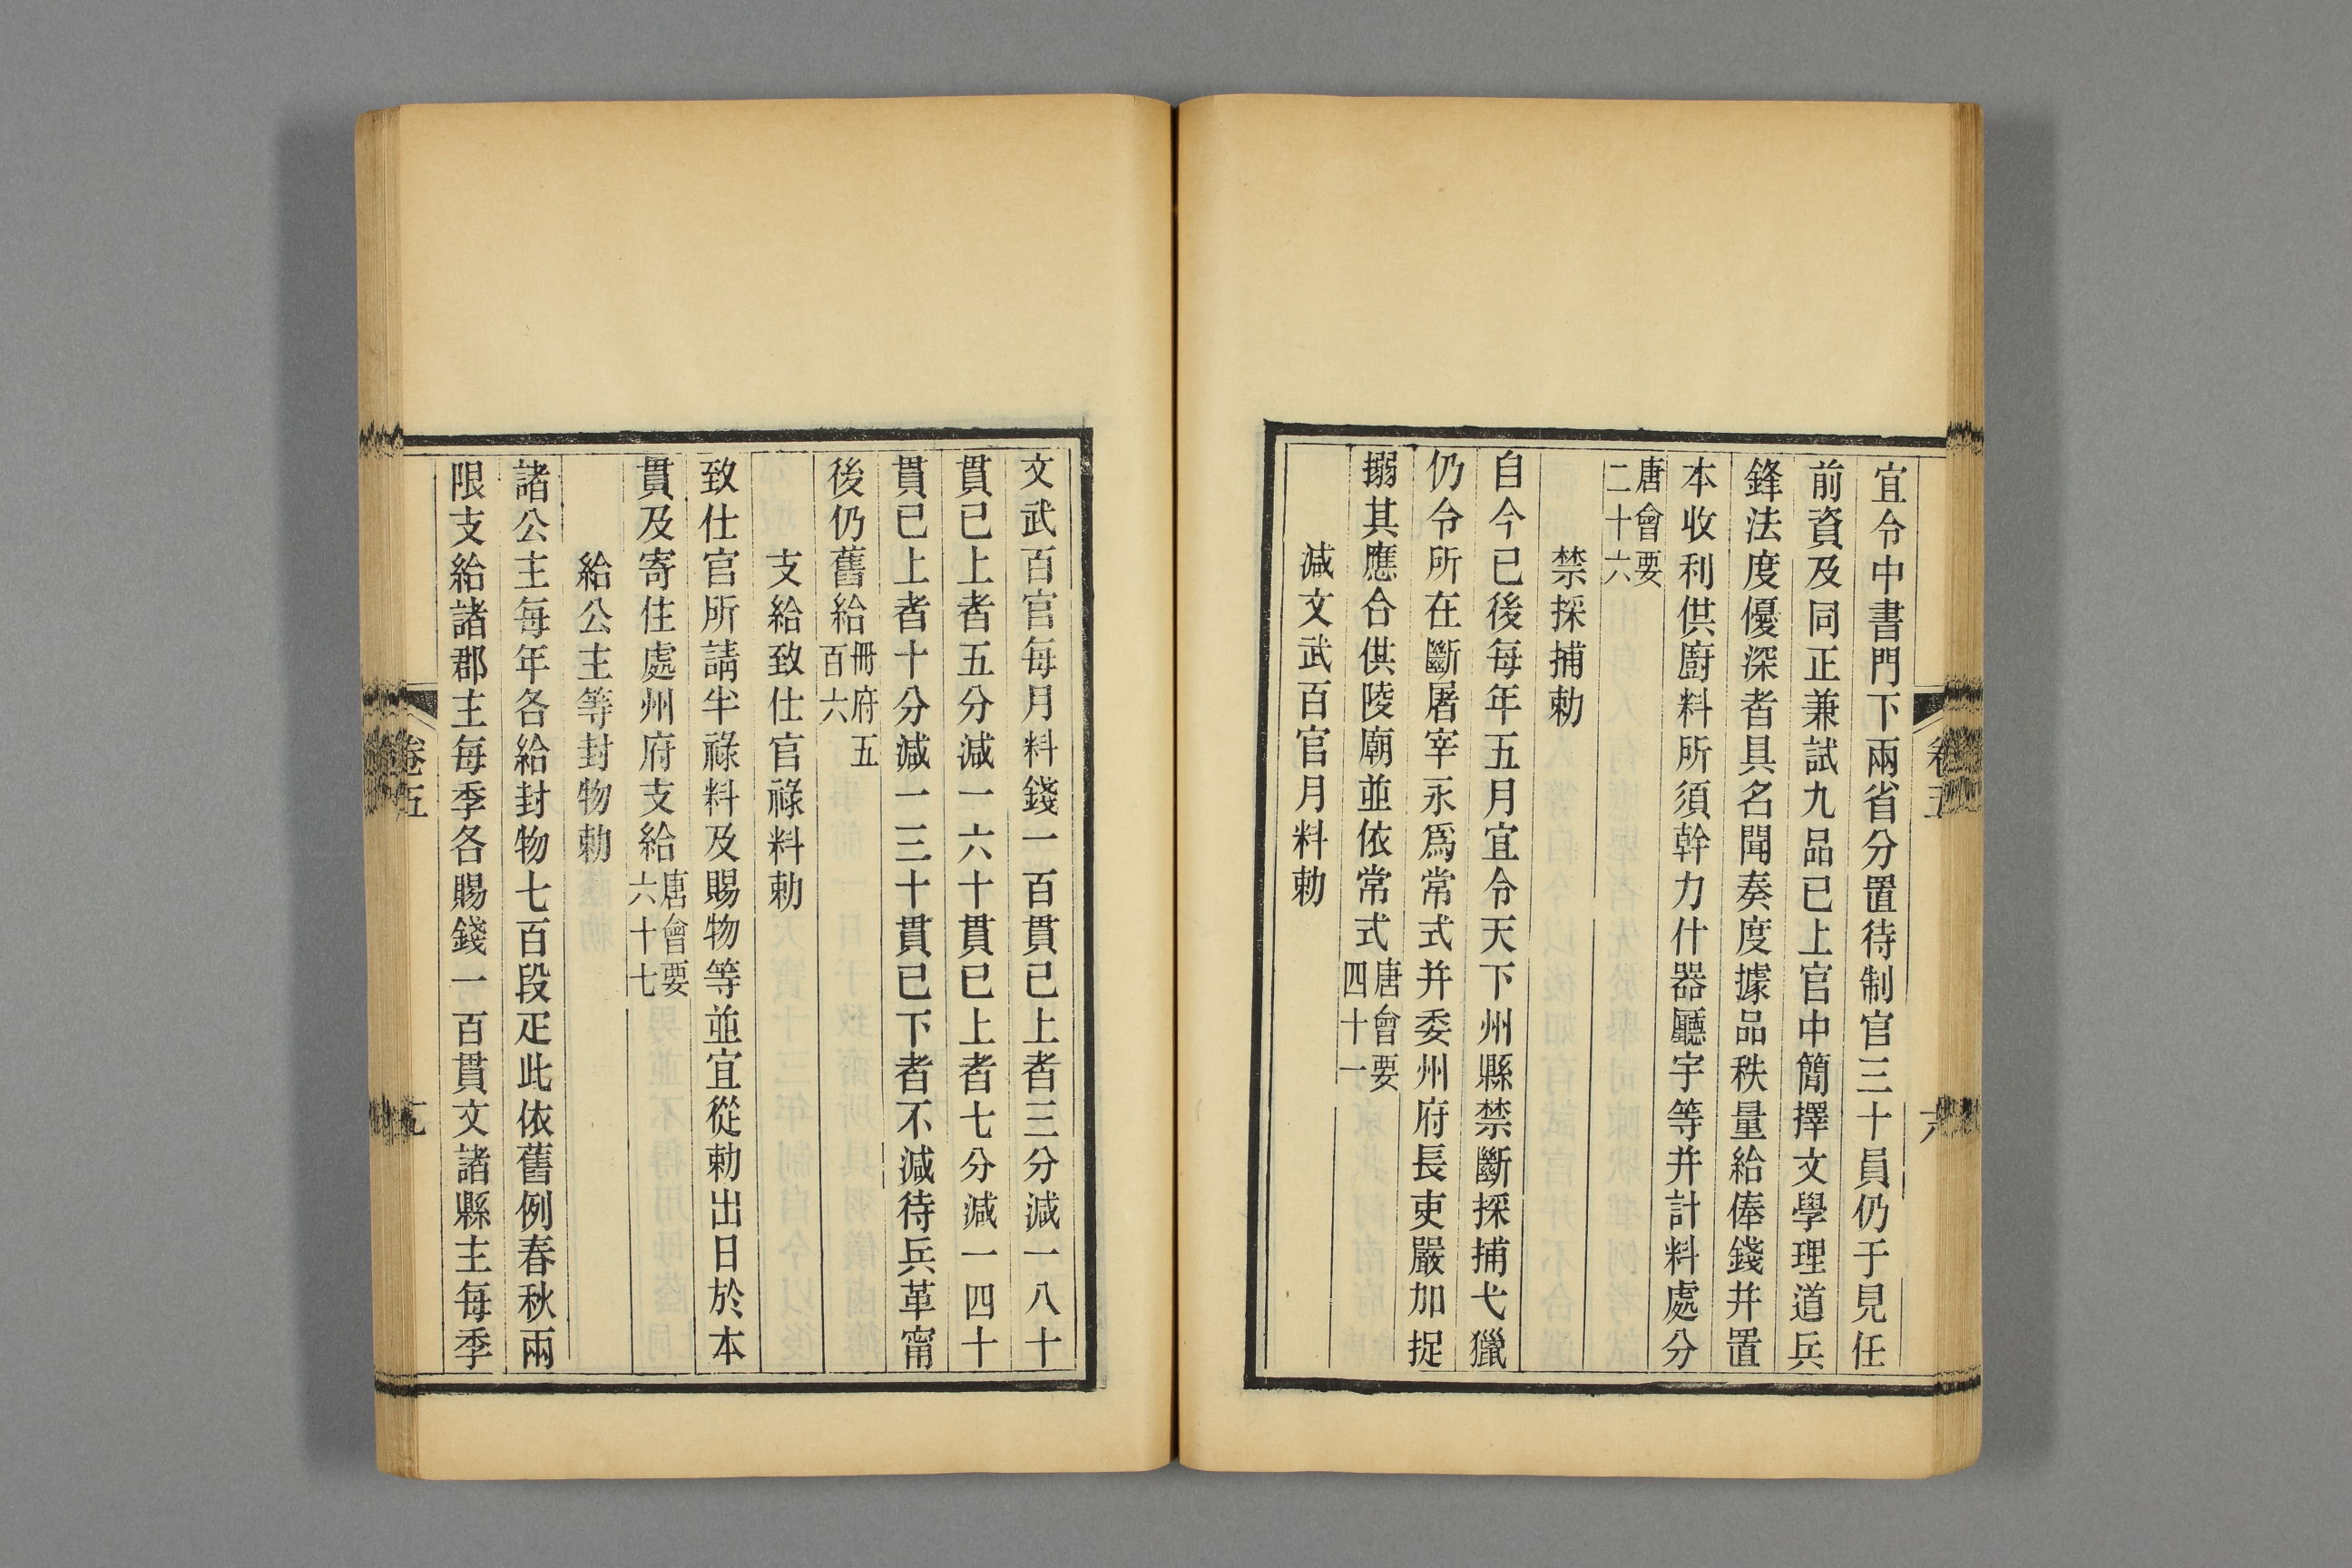 宜令中書門下兩省分置待制官三十員仍于見任
前資及同正兼試九品已上官中簡擇文學理道兵
鋒法度優深者具名聞奏度據品秩量給俸錢幷置
本收利供廚料所須幹力什器廳宇等幷計料處分
唐會要
二十六
禁採捕勅
自今已後每年五月宜令天下州縣禁斷採捕弋獵
仍令所在斷屠宰永爲常式幷委州府長吏嚴加捉
搦其應合供陵廟並依常式唐會要
四十一
減文武百官月料勅
文武百官每月料錢一百貫已上者三分減一八十
貫已上者五分減一六十貫已上者七分減一四十
貫已上者十分減一三十貫已下者不減待兵革甯
後仍舊給冊府五
百六
支給致仕官祿料勅
致仕官所請半祿料及賜物等並宜從勅出日於本
貫及寄住處州府支給唐會要
六十七
給公主等封物勅
諸公主每年各給封物七百段疋此依舊例春秋兩
限支給諸郡主每季各賜錢一百貫文諸縣主每季
卷五